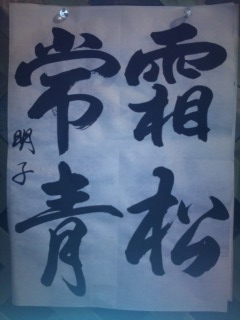 霜松
常青
明子